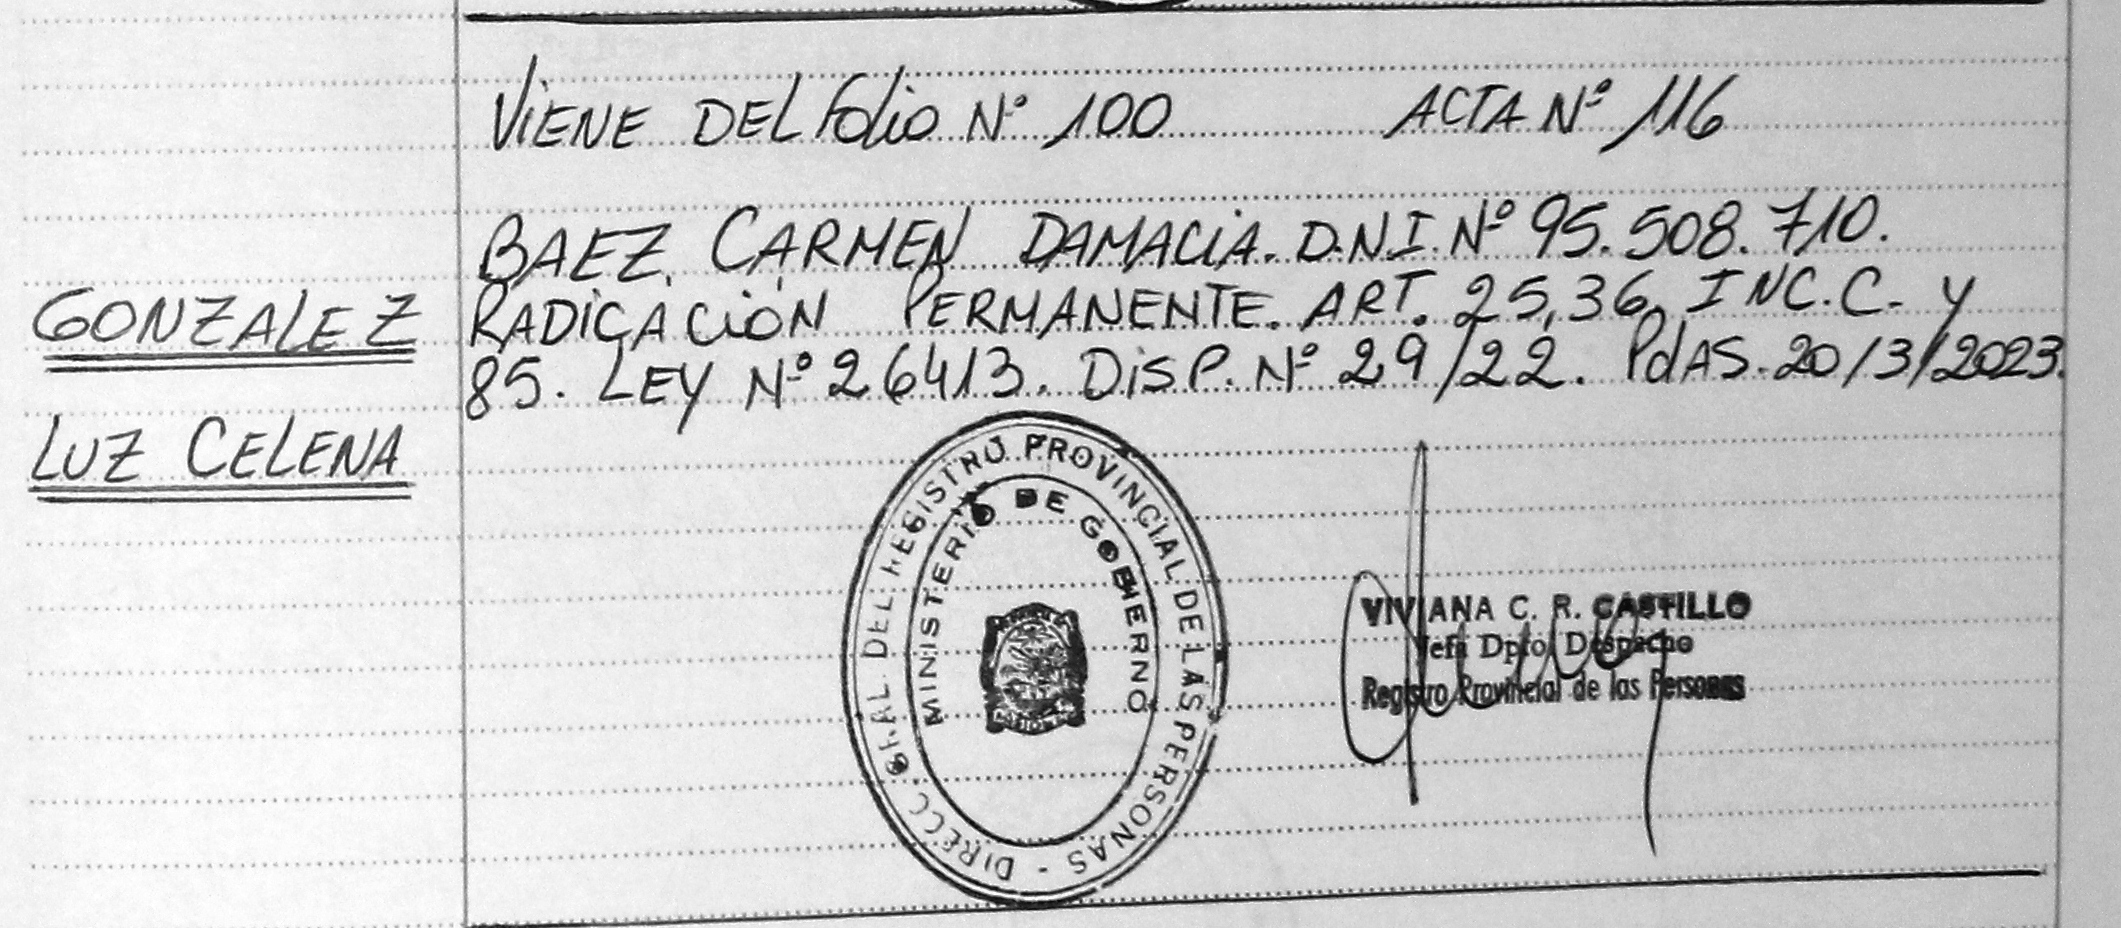 ViENE DEL Folio Nº 100 ACTA Nº 116
BAEZ, CARMEN DAMACiA. D.N.I. Nº 95.508.710.
GONZALEZ
RADiCACiÓN PERMANENTE. ART. 25,36, INC.C- y
85. LEY Nº 26413. DiSP. Nº 29/22. PdAS. 20/3/2023.
LUZ CELENA
DIRECC. GRAL. DEL REGISTRO PROVINCIAL DE LAS PERSONAS -
MINISTERIO DE GOBIERNO
VIVIANA C. R. CASTILLO
Jefa Dpto Despacho
Registro Provincial de las Personas